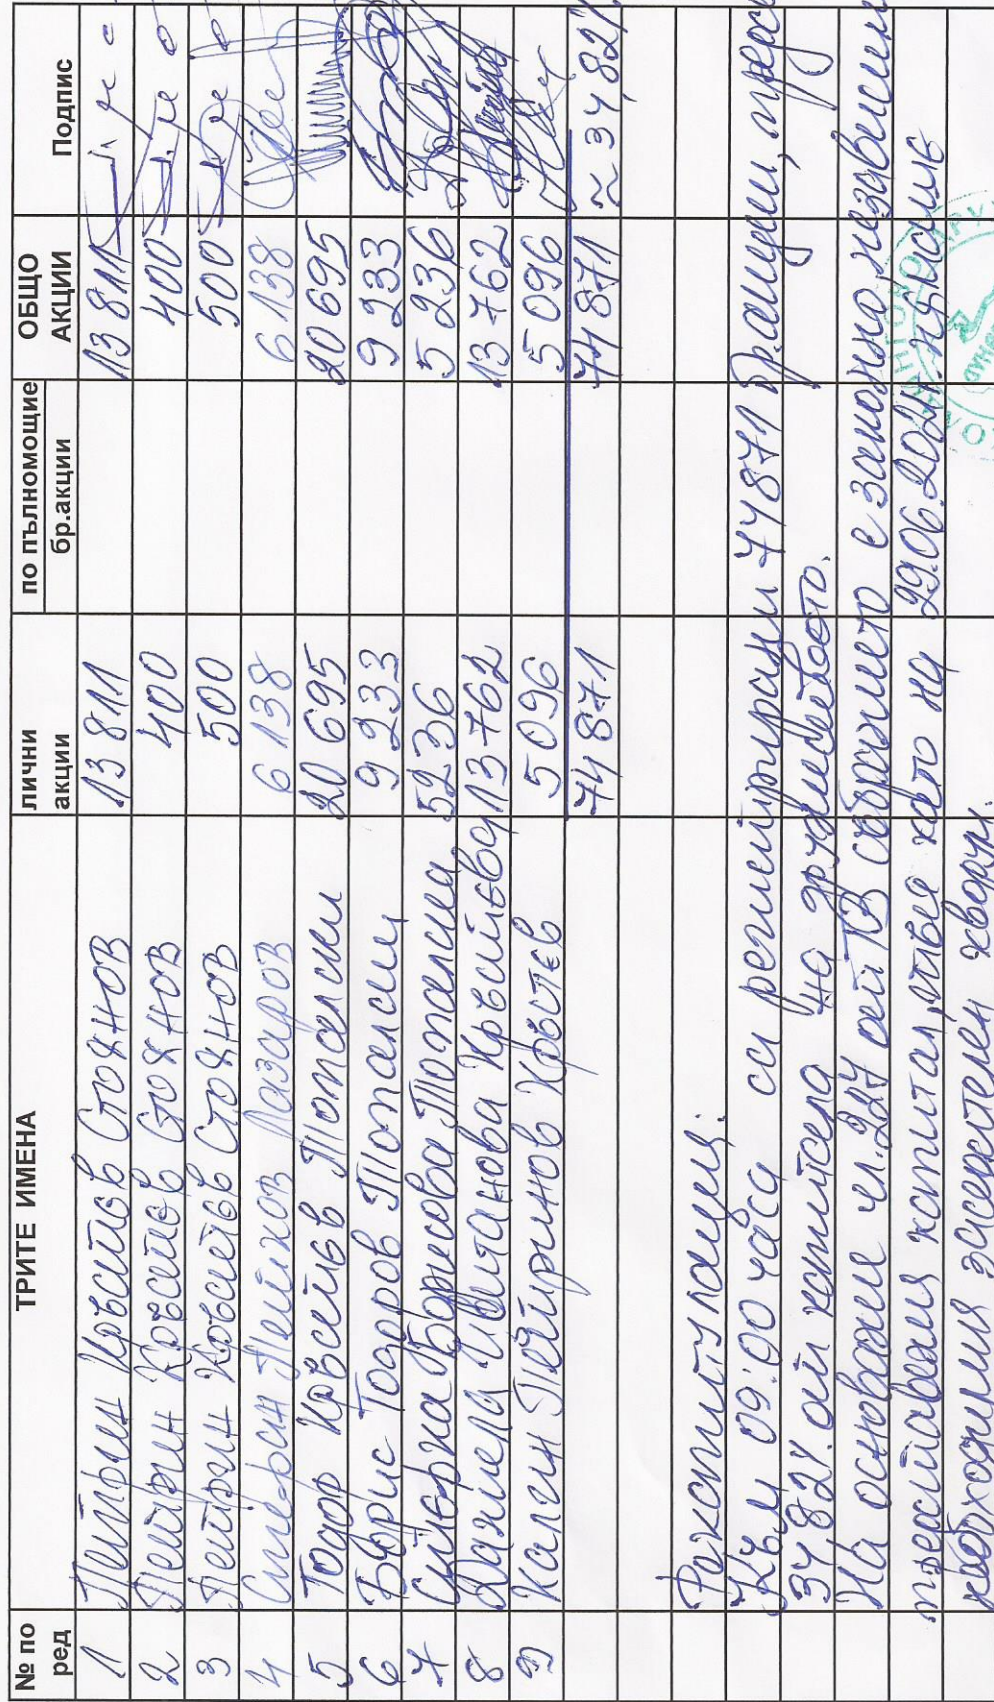 № по ред ТРИТЕ ИМЕНА ЛИЧНИ акции по пълномощие бр.акции ОБЩО АКЦИИ Подпис
1 Петрин Кръстев Стоянов 13 811 13 811
2 Петрин Кръстев Стоянов 400 400
3 Петрин Кръстев Стоянов 500 500
4 Стефан Пейков Лазаров 6 138 6 138
5 Тодор Кръстев Топалски 20 695 20 695
6 Борис Тодоров Топалски 9 233 9 233
7 Борисова Топалска 5236 5 236
8 Даниела Иванова Кръстева 13 762 13 762
9 Калин Петринов Кръстев 5 096 5 096
74 871 74 871 ≈ 34,82%
Рекапитулация:
Към 09:00 часа са регистрирани 74871 бр.акции,
34,82% от капитала на дружеството.
На основание чл.227 от ТЗ събранието е законно независимо
представения капитал, тъй като на 29.06.2021г. липсваше
необходимия кворум.